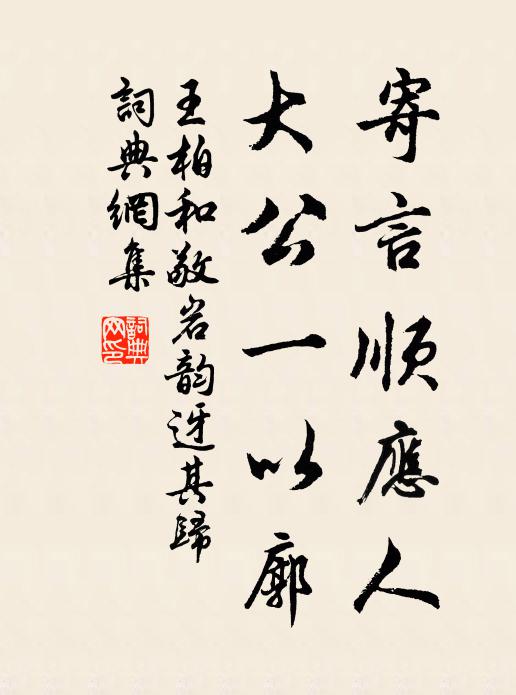 寄言順應人
大公一以廓
王柏和敬岩韵迓其歸
詞典網集
詞典网印